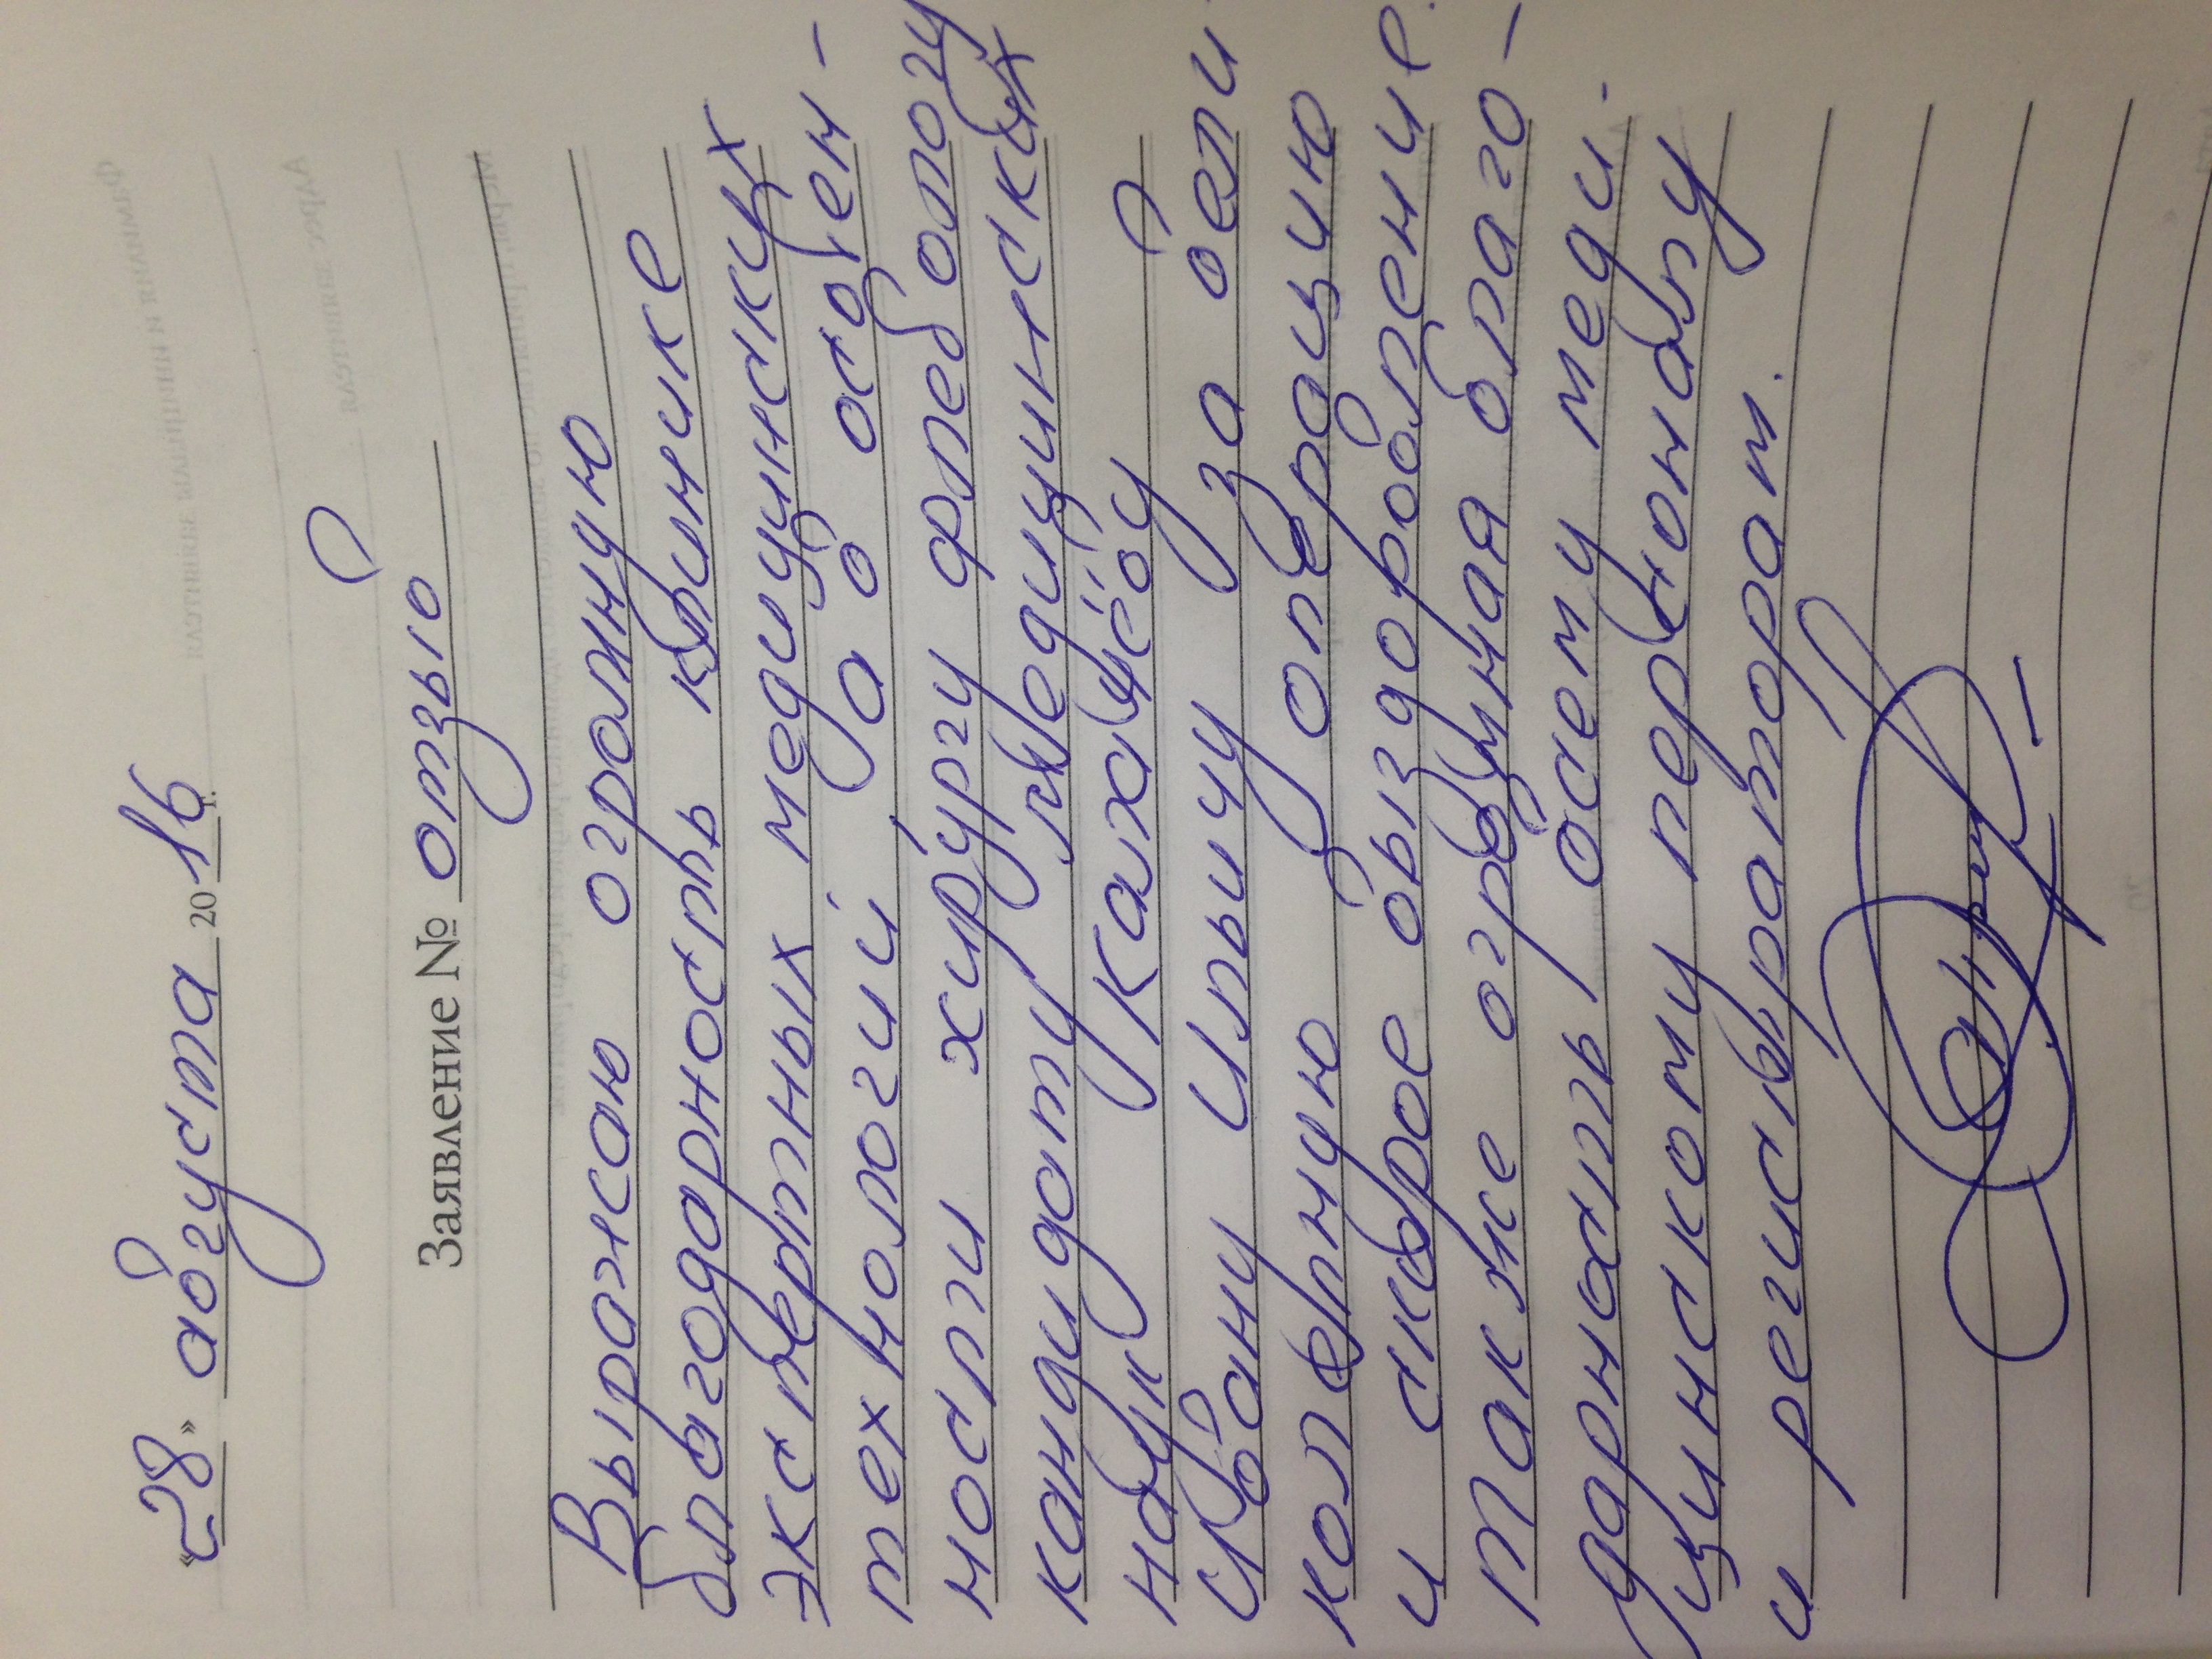 «28» августа 2016 г.
Заявление № отзыв
Выражаю огромную
благодарность клинике
экспертных медицинских
технологий, а в особен-
ности хирургу флебологу
кандидату медицинских
наук
Ивану Ильичу за вели
колепную операцию
и скорое выздоровление.
Также огромная благо-
дарность всему меди-
цинскому персоналу
и регистраторам.